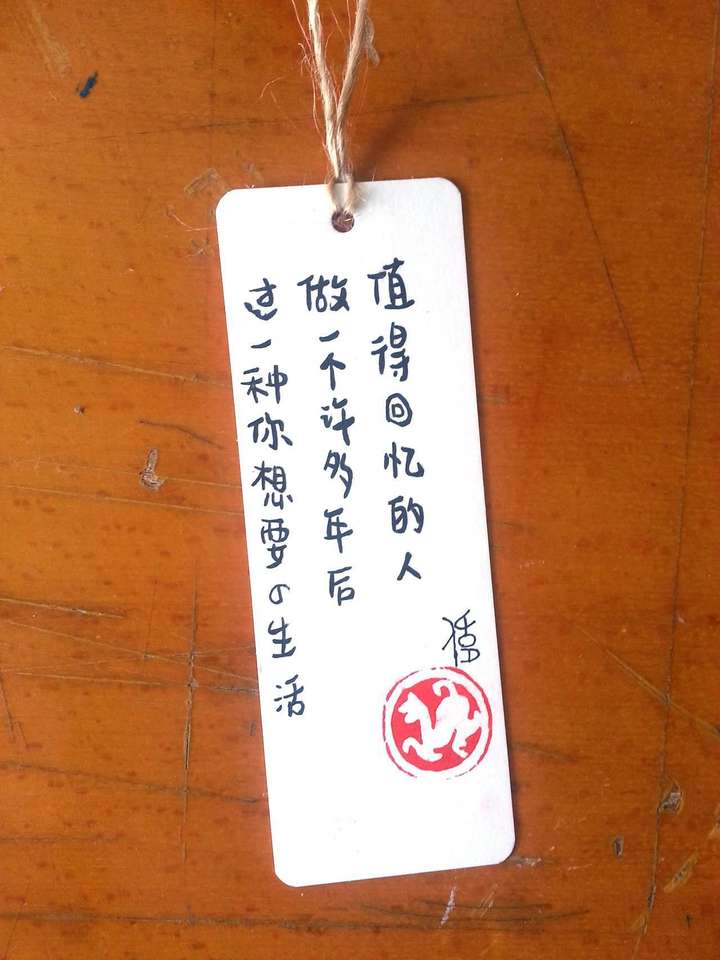 过一种你想要の生活
做一个许多年后
值得回忆的人